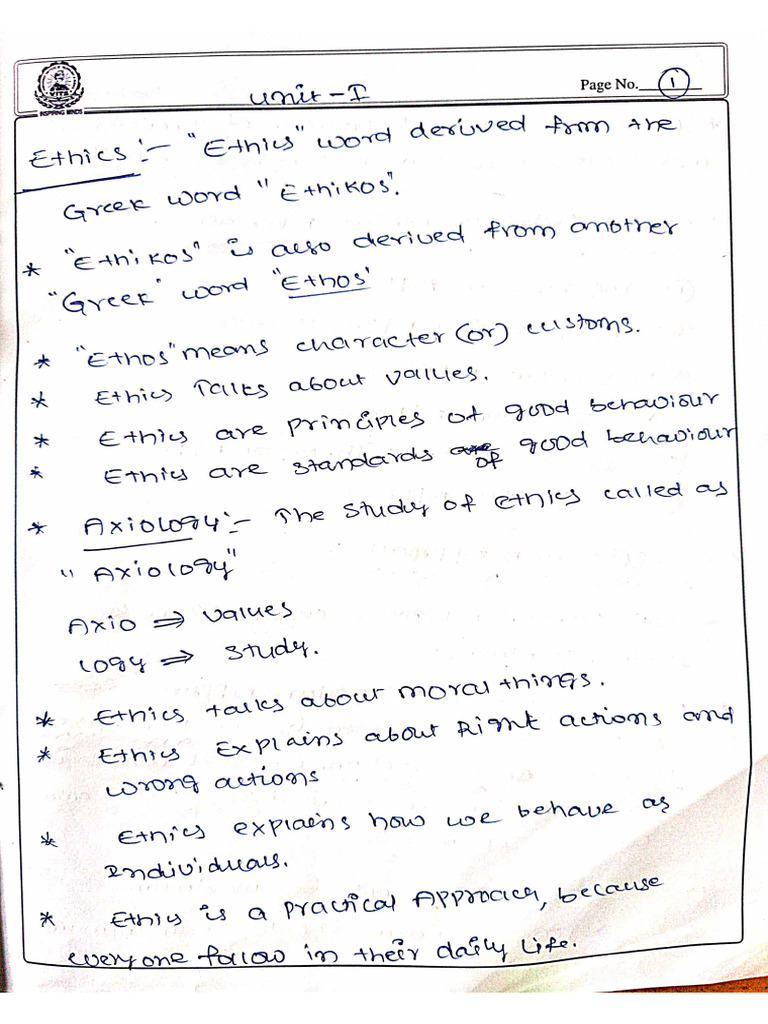 INSPIRING MINDS
Unit - I
Page No. 1
Ethics :- "Ethics" word derived from the
Greek word "Ethikos".
* "Ethikos" is also derived from another
"Greek" word "Ethos'
* "Ethos" means character (or) customs.
* Ethics Talks about values.
* Ethics are principles of good behaviour
* Ethics are standards of good behaviour
* Axiology :- The study of ethics called as
"Axiology"
Axio ⇒ values
logy ⇒ study.
* Ethics talks about moral things.
* Ethics Explains about Right actions and
wrong actions
* Ethics explains how we behave as
Individuals.
* Ethics is a practical Approach, because
everyone follow in their daily life.